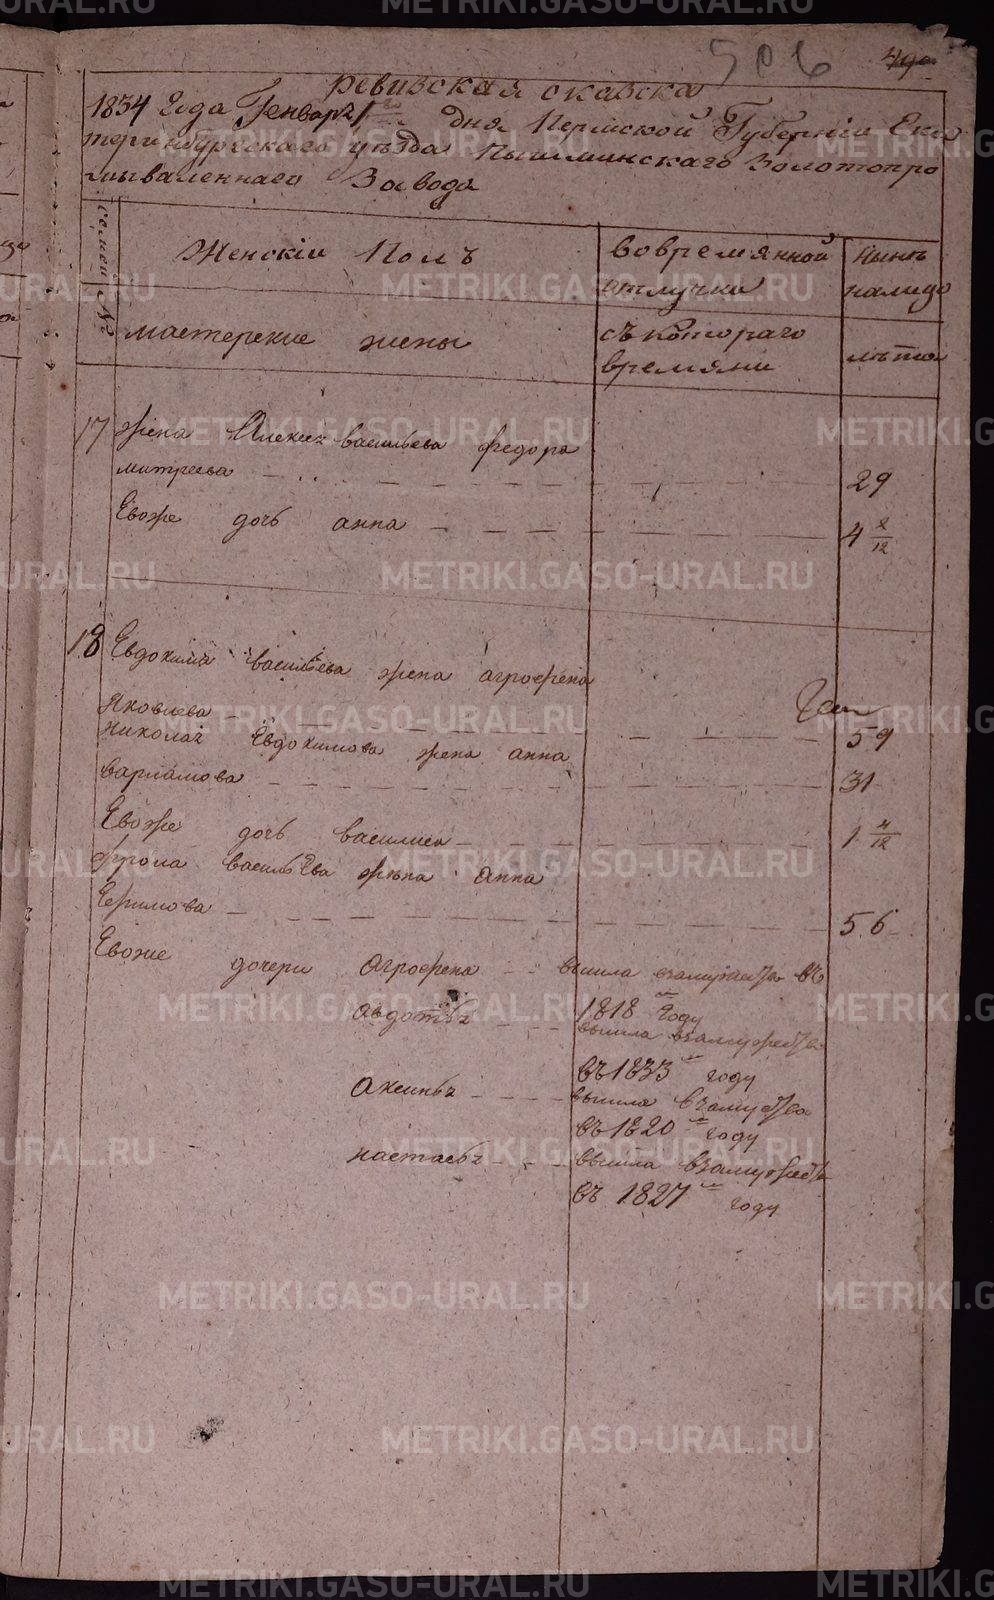 506
490
ревизская скаска
1834 Года Генваря 1го дня Пермской Губернiи Ека
теринбургскаго уезда Пышминскаго Золотопро
мываленнаго Завода
семей №
Женскiй Полъ
вовремянной отлучки
ныне налицо
мастерские жены
съ котораго времяни
лѣта
17 жена Алексея васильева федора
митреева 29
Ея же дочь анна 4 2/12
18 Евдокима васильева жена агрофена
Яковлева 59
Николая Евдокимова жена анна
варламова 31
Ея же дочь василиса 1 4/12
фрола васильева жена анна
Ефимова 56
Ея же дочери агрофена вышла взамужества въ
1818м году
авдотья вышла взамужества
въ 1833м году
аксинья вышла взамужества
въ 1820м году
настасья вышла взамужества
въ 1827м году
METRIKI.GASO-URAL.RU